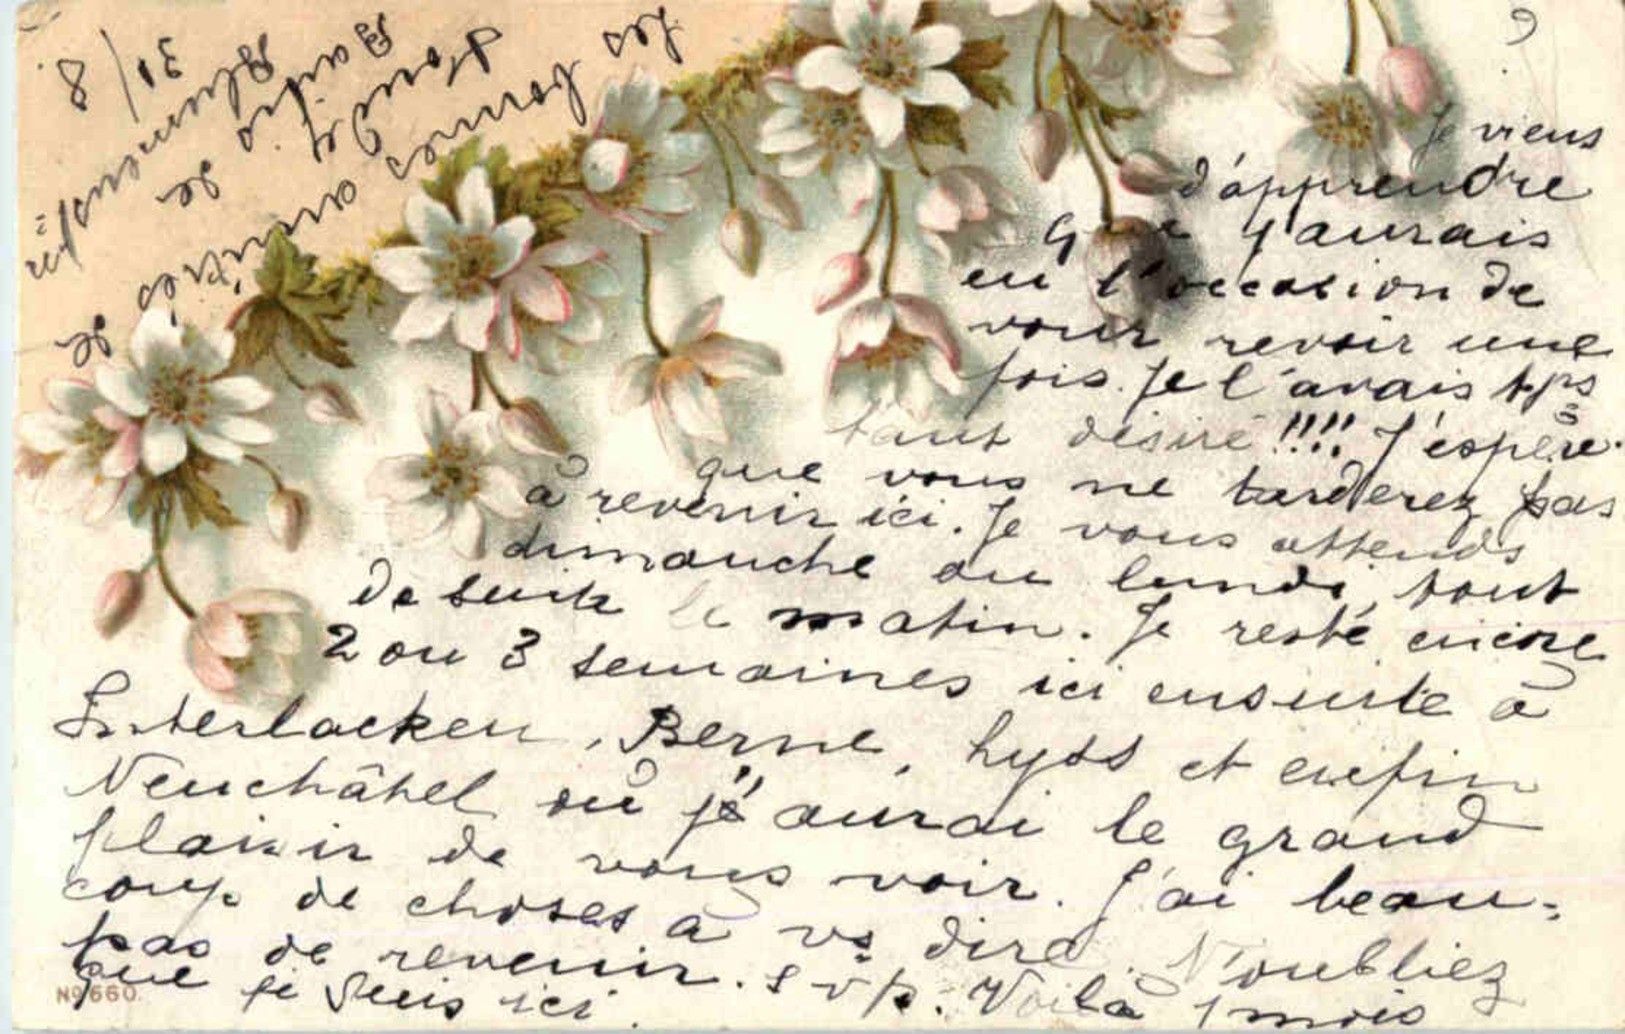 Je viens
d'apprendre
que j'aurais
eu l'occasion de
vour revoir une
fois. Je l'avais tps
tant désiré !!!! J'espère
que vous ne tarderez pas
à revenir ici. Je vous attends
dimanche ou lundi, tout
de suite le matin. Je reste encore
2 ou 3 semaines ici ensuite à
Interlacken, Berne, Lyss et enfin
Neuchâtel où j'aurai le grand
plaisir de vous voir. J'ai beau-
coup de choses à vs dire. N'oubliez
pas de revenir. s v p. Voilà 1 mois
que je suis ici.
Les bonnes amitiés de
de
31/8
No 660.